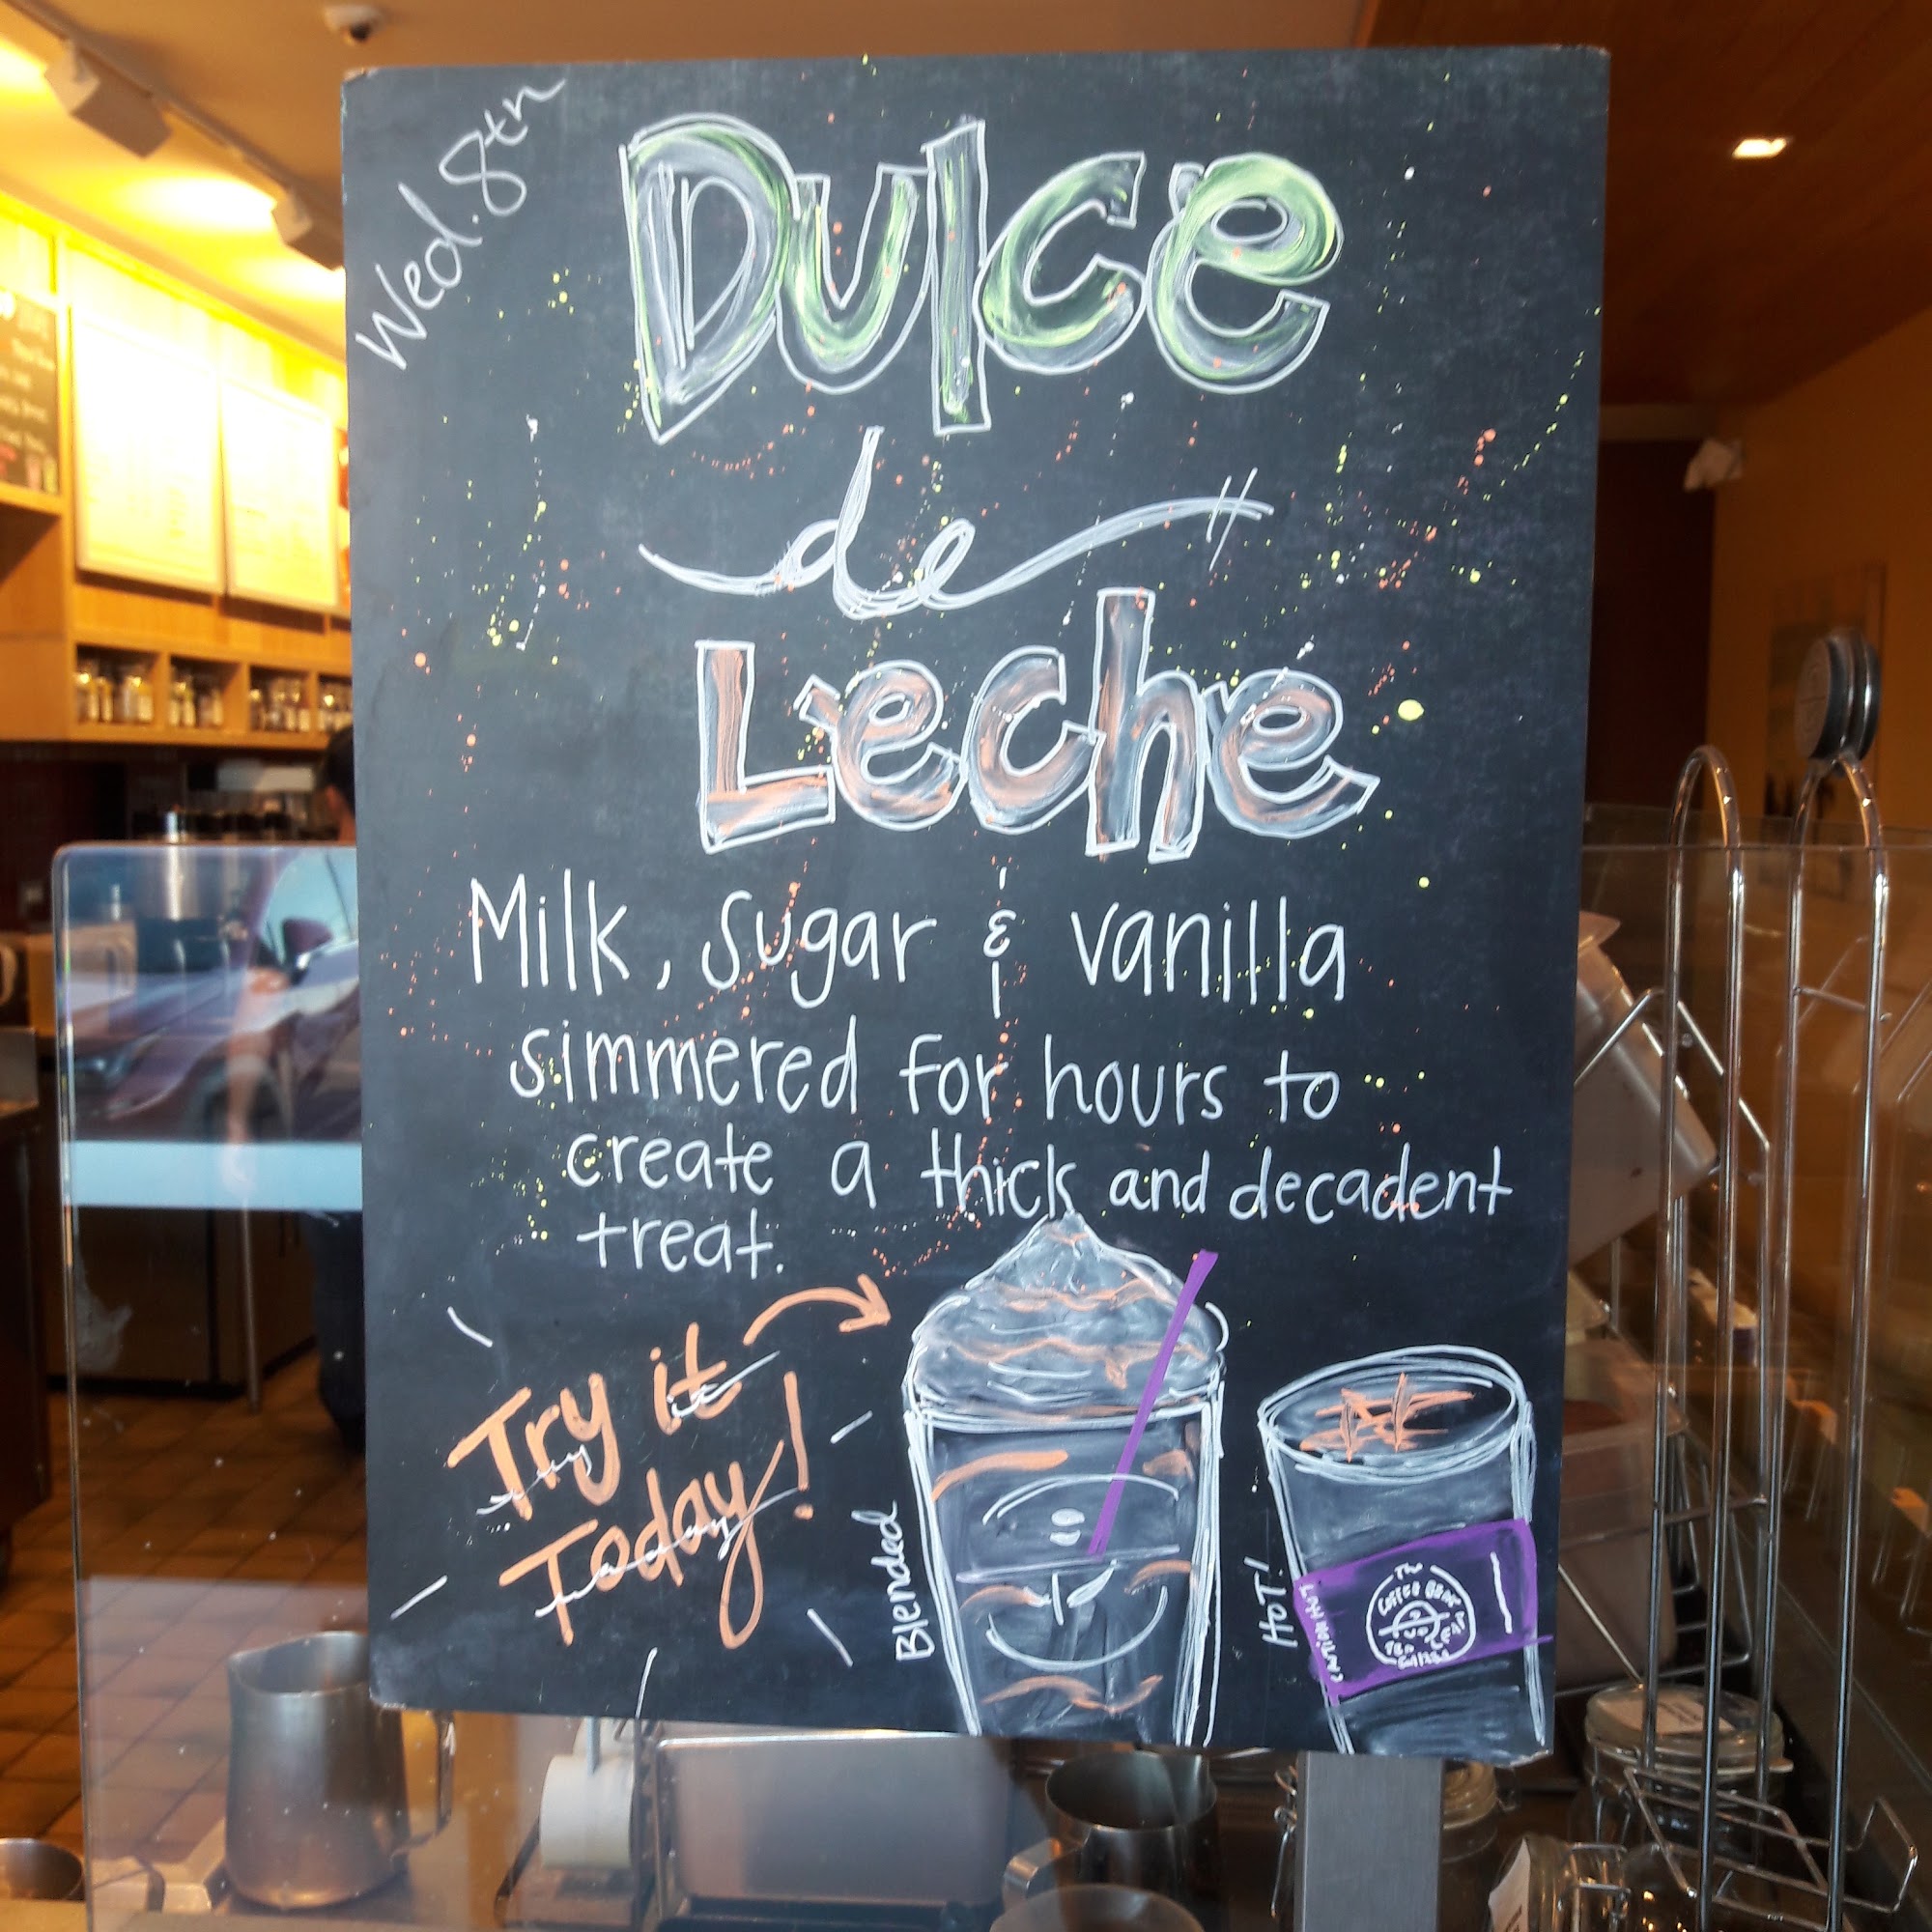 Wed. 8th
Dulce
de
Leche
Milk, sugar & vanilla
simmered for hours to
create a thick and decadent
treat.
Try it
Today!
Blended
HOT!
CAUTION HOT
The
Coffee Bean